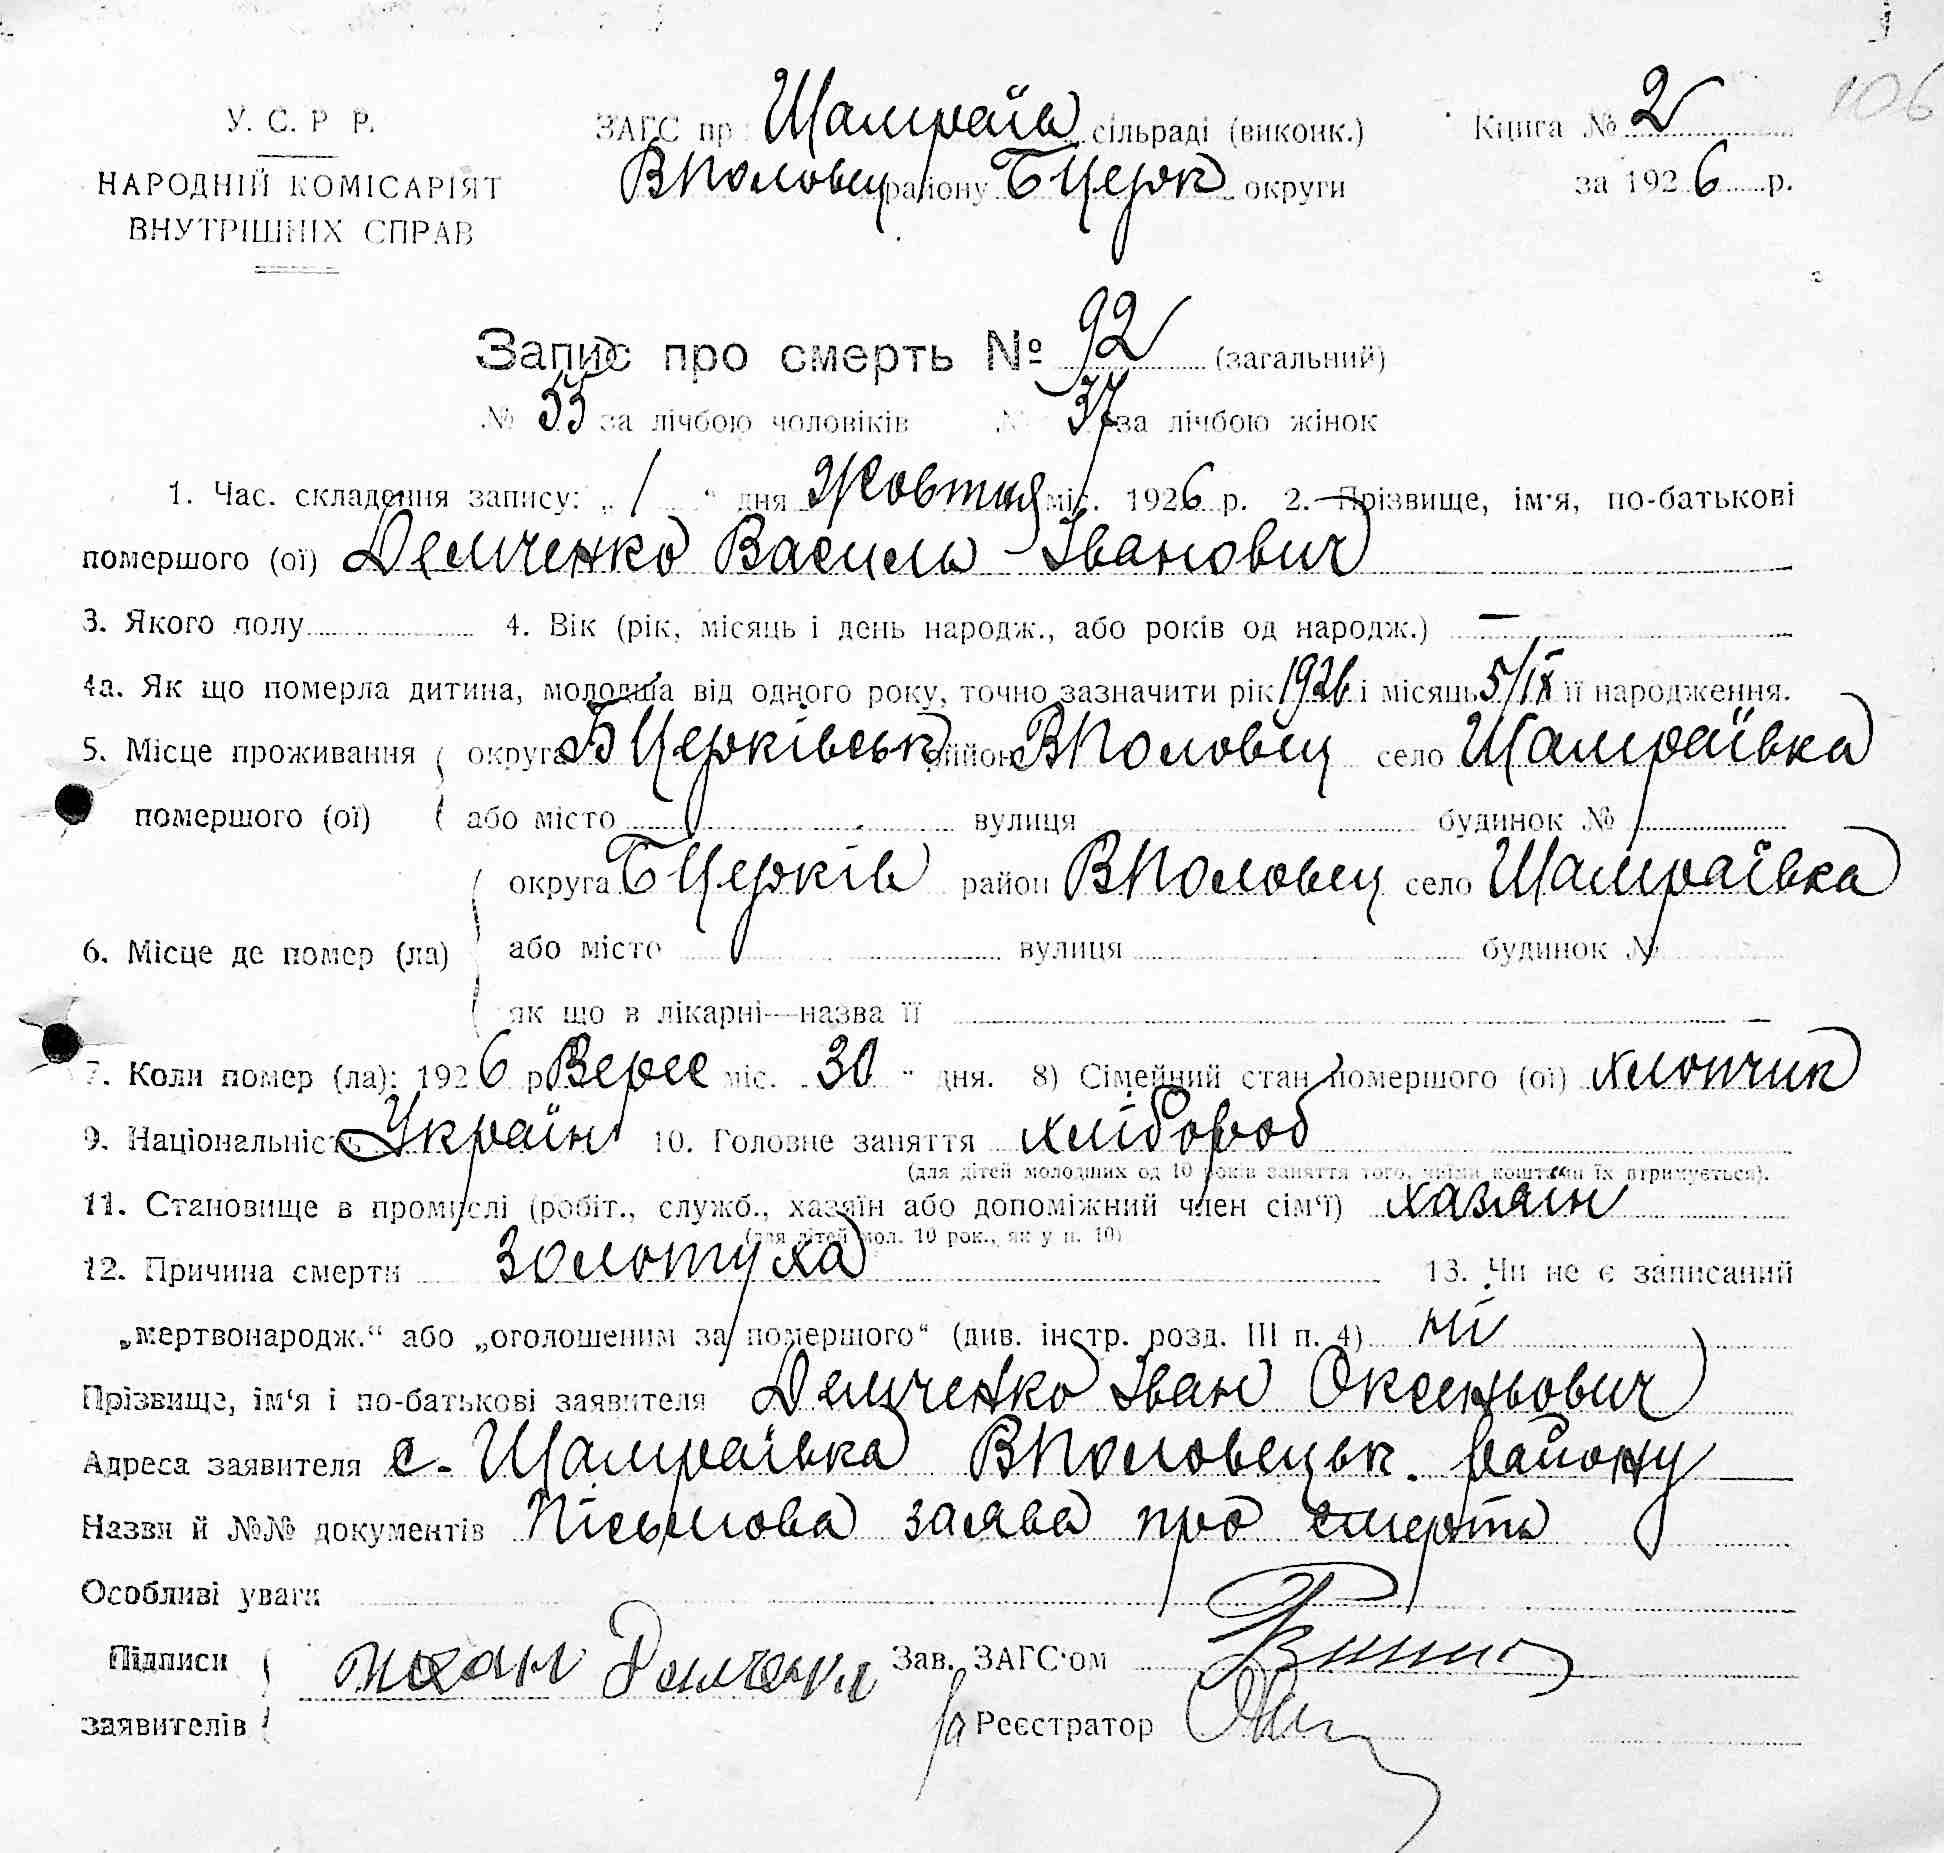 106
У. С. Р Р.
НАРОДНІЙ КОМІСАРІЯТ
ВНУТРІШНІХ СПРАВ
ЗАГС пр Шамраїв сільраді (виконк.)
ВПоловец району БЦерк округи
Книга № 2
за 1926 р.
Запис про смерть № 92 (загальний)
№ 55 за лічбою чоловіків № 37 за лічбою жінок
1. Час. складення запису: „ 1 “ дня Жовтня міс. 1926 р. 2. Прізвище, ім'я, по-батькові
помершого (ої) Демченко Василь Іванович
3. Якого полу 4. Вік (рік, місяць і день народж., або років од народж.) —
4а. Як що померла дитина, молодша від одного року, точно зазначити рік 1926 і місяць 5/ІХ її народження.
5. Місце проживання помершого (ої) округа БЦерківськ район ВПоловец село Шамраївка
або місто вулиця будинок №
6. Місце де помер (ла) округа БЦерків район ВПоловец село Шамраївка
або місто вулиця будинок №
як що в лікарні—назва її —
7. Коли помер (ла): 1926 р Верес міс. 30 “ дня. 8) Сімейний стан помершого (ої) хлопчик
9. Національність Україн 10. Головне заняття хлібороб
(для дітей молодших од 10 років заняття того, чиїми коштами їх втримується).
11. Становище в промислі (робіт., служб., хазяїн або допоміжний член сім'ї) хазяїн
(для дітей мол. 10 рок., як у п. 10)
12. Причина смерти золотуха 13. Чи не є записаний
„мертвонародж.“ або „оголошеним за помершого“ (див. інстр. розд. III п. 4) ні
Прізвище, ім'я і по-батькові заявителя Демченко Іван Оксеньович
Адреса заявителя с. Шамраївка ВПоловецьк. району
Назви й №№ документів Письмова заява про смерть
Особливі уваги
Підписи заявителів Демченко Зав. ЗАГС'ом
Реєстратор